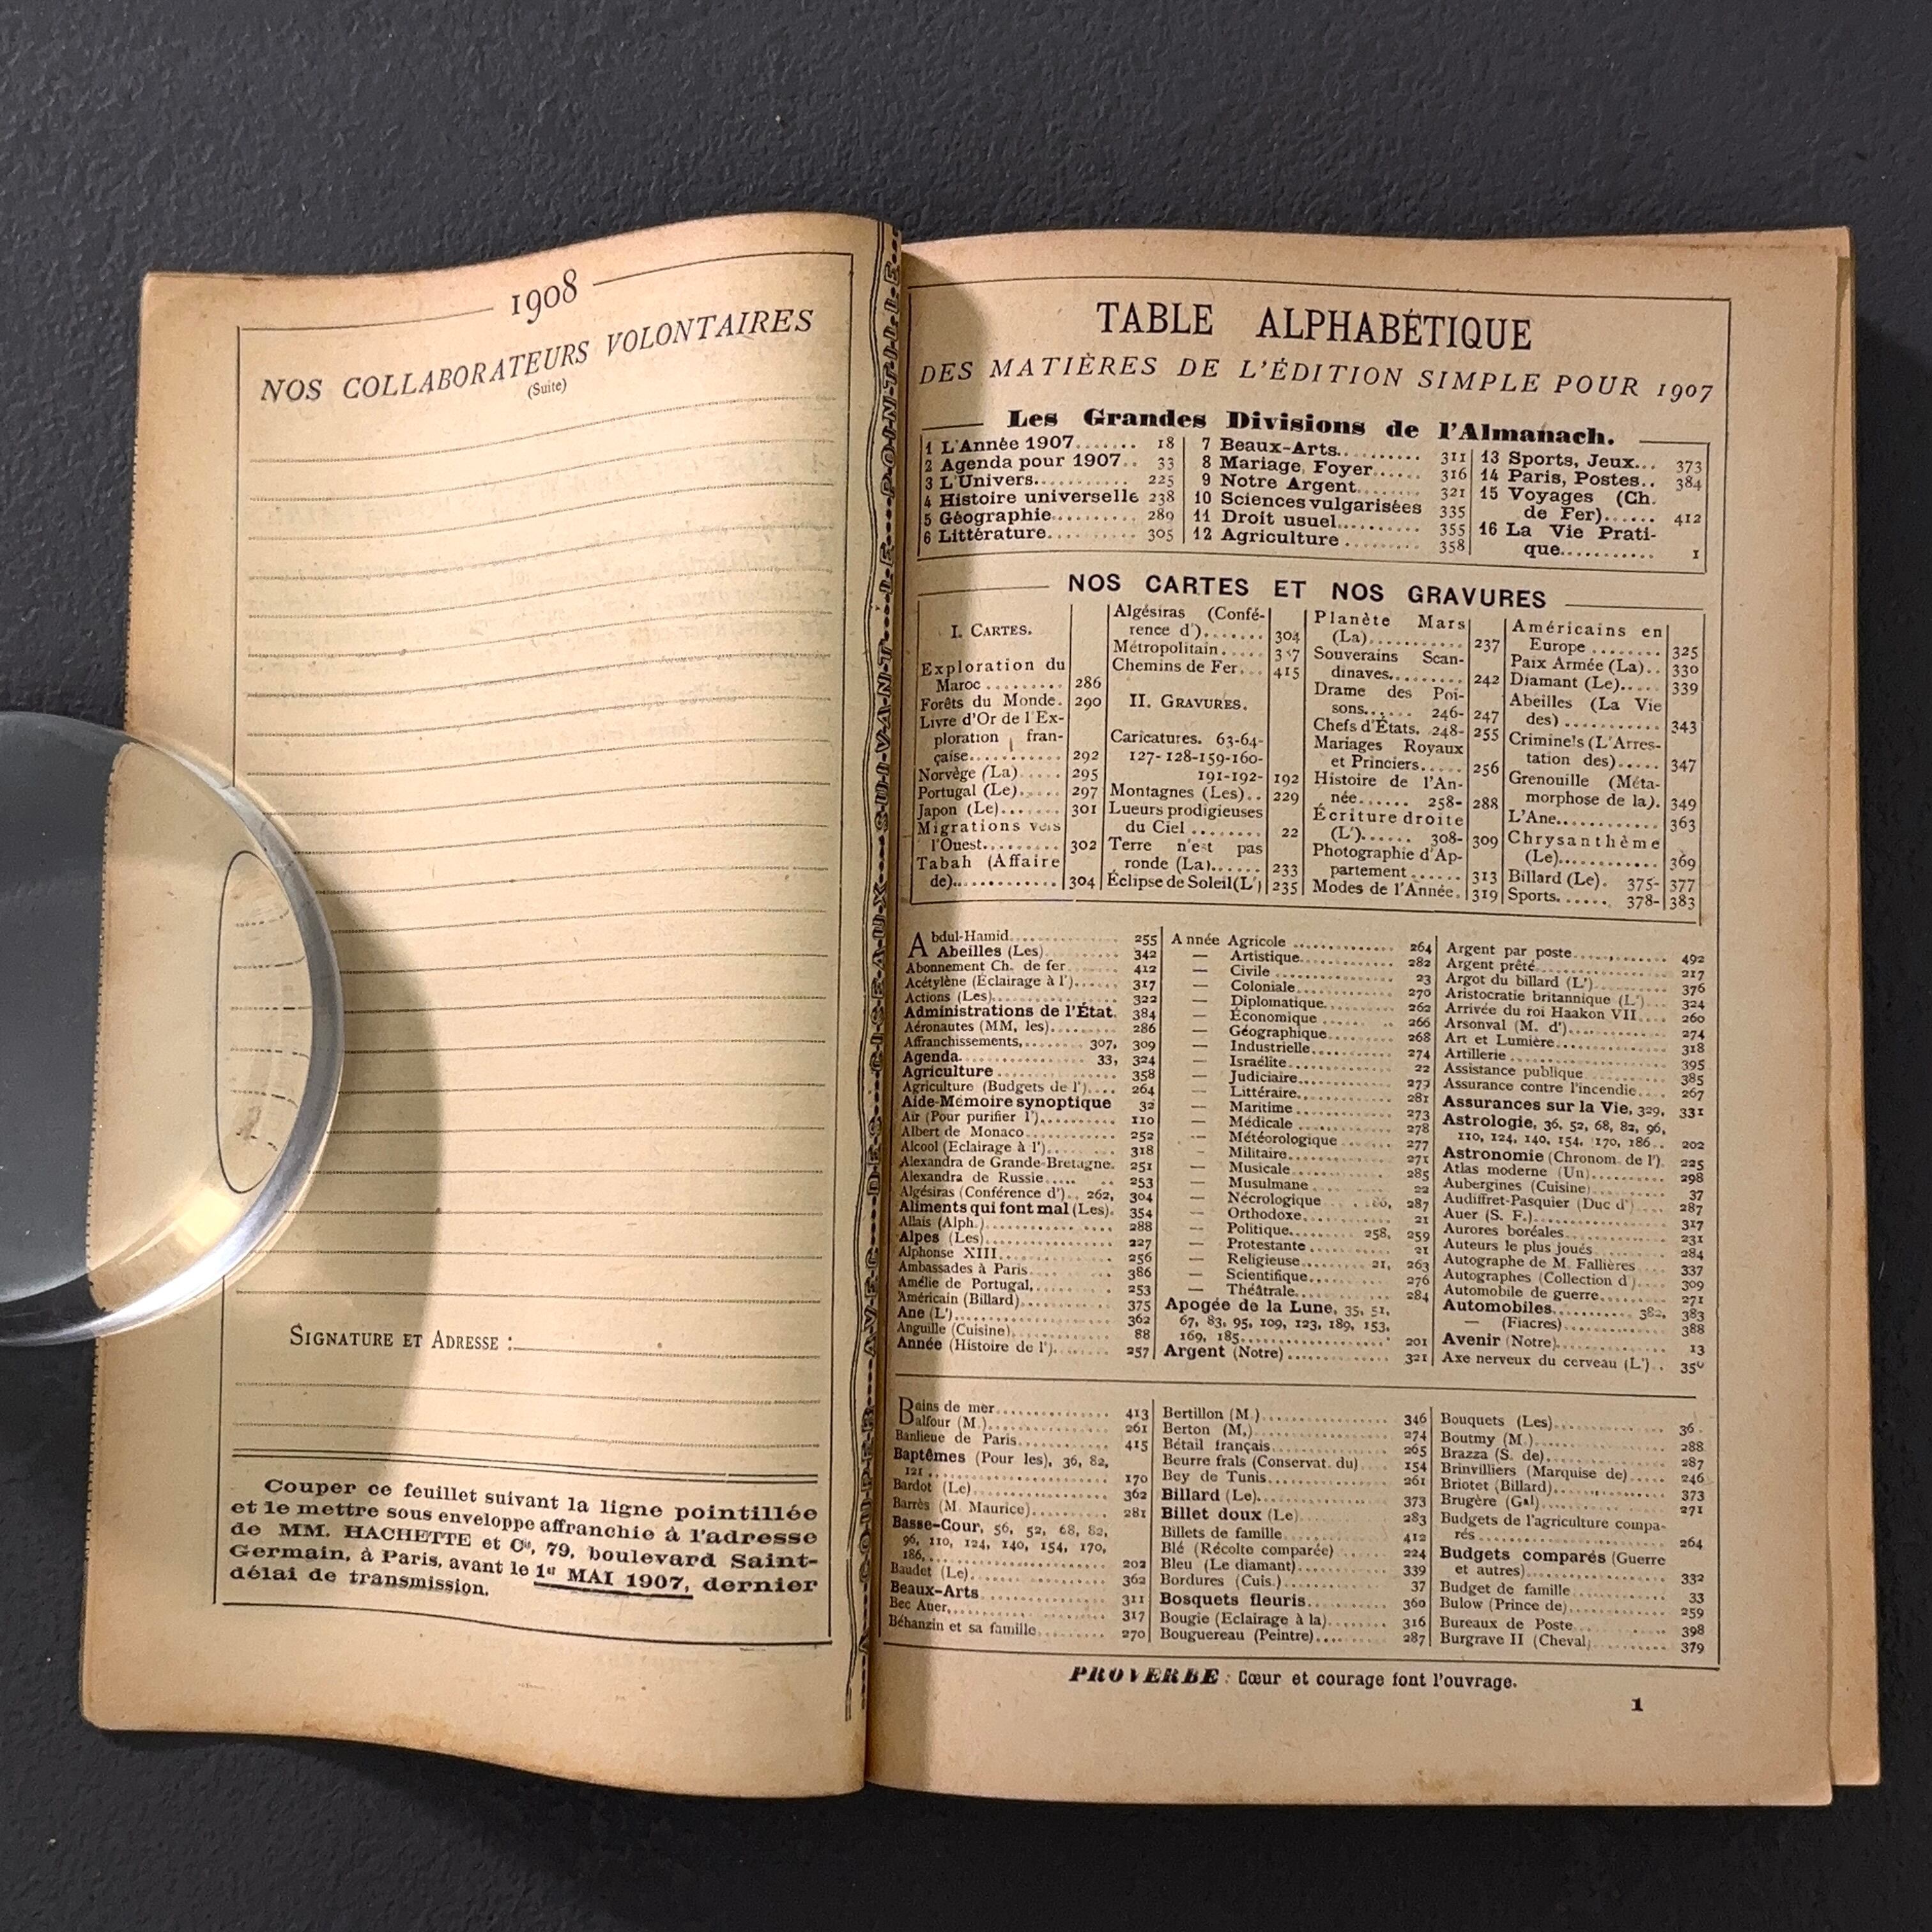 1908
NOS COLLABORATEURS VOLONTAIRES
(Suite)
SIGNATURE ET ADRESSE :
Couper ce feuillet suivant la ligne pointillée
et le mettre sous enveloppe affranchie à l'adresse
de MM. HACHETTE et Cie, 79, boulevard Saint-
Germain, à Paris, avant le 1er MAI 1907, dernier
délai de transmission.
A COUPER AVEC DES CISEAUX SUIVANT LE POINTILLE
TABLE ALPHABÉTIQUE
DES MATIÈRES DE L'ÉDITION SIMPLE POUR 1907
Les Grandes Divisions de l'Almanach.
1 L'Année 1907....... 18
2 Agenda pour 1907.. 33
3 L'Univers........... 225
4 Histoire universelle 238
5 Géographie.......... 289
6 Littérature.......... 305
7 Beaux-Arts.......... 311
8 Mariage, Foyer...... 316
9 Notre Argent........ 321
10 Sciences vulgarisées 335
11 Droit usuel.......... 355
12 Agriculture ........ 358
13 Sports, Jeux... 373
14 Paris, Postes.. 384
15 Voyages (Ch.
de Fer)...... 412
16 La Vie Prati-
que........... 1
NOS CARTES ET NOS GRAVURES
I. CARTES.
Exploration du
Maroc ......... 286
Forêts du Monde. 290
Livre d'Or de l'Ex-
ploration fran-
çaise........... 292
Norvège (La)..... 295
Portugal (Le)..... 297
Japon (Le)....... 301
Migrations vers
l'Ouest......... 302
Tabah (Affaire
de)............. 304
Algésiras (Confé-
rence d')....... 304
Métropolitain.....
Chemins de Fer... 415
II. GRAVURES.
Caricatures. 63-64-
127-128-159-160-
191-192- 192
Montagnes (Les).. 229
Lueurs prodigieuses
du Ciel ........ 22
Terre n'est pas
ronde (La)...... 233
Éclipse de Soleil (L') 235
Planète Mars
(La)........... 237
Souverains Scan-
dinaves......... 242
Drame des Poi-
sons...... 246- 247
Chefs d'États. 248- 255
Mariages Royaux
et Princiers..... 256
Histoire de l'An-
née...... 258- 288
Écriture droite
(L')...... 308- 309
Photographie d'Ap-
partement ...... 313
Modes de l'Année. 319
Américains en
Europe ........ 325
Paix Armée (La).. 330
Diamant (Le)..... 339
Abeilles (La Vie
des) ........... 343
Criminels (L'Arres-
tation des)..... 347
Grenouille (Méta-
morphose de la). 349
L'Ane............ 363
Chrysanthème
(Le)............ 369
Billard (Le). 375- 377
Sports...... 378- 383
Abdul-Hamid.......... 255
Abeilles (Les)......... 342
Abonnement Ch. de fer...... 412
Acétylène (Éclairage à l')...... 317
Actions (Les)........ 322
Administrations de l'État. 384
Aéronautes (MM. les)......... 286
Affranchissements,....... 307, 309
Agenda............ 33, 324
Agriculture ........ 358
Agriculture (Budgets de l').... 264
Aide-Mémoire synoptique 32
Air (Pour purifier l').......... 110
Albert de Monaco............ 252
Alcool (Eclairage à l')......... 318
Alexandra de Grande-Bretagne. 251
Alexandra de Russie..... .. 253
Algésiras (Conférence d').. 262, 304
Aliments qui font mal (Les). 354
Allais (Alph.)........ 288
Alpes (Les)......... 227
Alphonse XIII......... 256
Ambassades à Paris........ 386
Amélie de Portugal,........ 253
Américain (Billard)........ 375
Ane (L')........ 362
Anguille (Cuisine)........ 88
Année (Histoire de l')........ 257
Année Agricole .............. 264
— Artistique........ 282
— Civile ........ 23
— Coloniale........ 270
— Diplomatique........ 262
— Économique ........ 266
— Géographique........ 268
— Industrielle........ 274
— Israélite........ 22
— Judiciaire........
— Littéraire........ 281
— Maritime ........ 273
— Médicale ........ 278
— Météorologique ...... 277
- Militaire........ 271
— Musicale........ 285
— Musulmane ........ 22
— Nécrologique ...... 287
— Orthodoxe........ 21
— Politique........ 258, 259
— Protestante ........ 21
— Religieuse........ 21, 263
— Scientifique........ 276
— Théâtrale........ 284
Apogée de la Lune, 35, 51,
67, 83, 95, 109, 123, 189, 153,
169, 185........ 201
Argent (Notre)........ 321
Argent par poste........ 492
Argent prêté........ 217
Argot du billard (L')...... 376
Aristocratie britannique (L')... 324
Arrivée du roi Haakon VII.... 260
Arsonval (M. d')........ 274
Art et Lumière........ 318
Artillerie ........ 395
Assistance publique........ 385
Assurance contre l'incendie.... 267
Assurances sur la Vie, 329, 331
Astrologie, 36, 52, 68, 82, 96,
110, 124, 140, 154, 170, 186.. 202
Astronomie (Chronom. de l'). 225
Atlas moderne (Un)........ 298
Aubergines (Cuisine)........ 37
Audiffret-Pasquier (Duc d')..... 287
Auer (S. F.)........ 317
Aurores boréales........ 231
Auteurs le plus joués........ 284
Autographe de M. Fallières.... 337
Autographes (Collection d')..... 309
Automobile de guerre........ 271
Automobiles........ 382, 383
— (Fiacres)........ 388
Avenir (Notre)........ 13
Axe nerveux du cerveau (L')..
Bains de mer........ 413
Balfour (M.)........ 261
Banlieue de Paris........ 415
Baptêmes (Pour les), 36, 82,
121 ........ 170
Bardot (Le)........ 362
Barrès (M. Maurice)........ 281
Basse-Cour, 56, 52, 68, 82,
96, 110, 124, 140, 154, 170,
186,........ 202
Baudet (Le)........ 362
Beaux-Arts........ 311
Bec Auer,........ 317
Béhanzin et sa famille........ 270
Bertillon (M.)........ 346
Berton (M,)........ 274
Bétail français........ 265
Beurre frais (Conservat. du).... 154
Bey de Tunis........ 261
Billard (Le)........ 373
Billet doux (Le)........ 283
Billets de famille........ 412
Blé (Récolte comparée)........ 224
Bleu (Le diamant)........ 339
Bordures (Cuis.)........ 37
Bosquets fleuris........ 360
Bougie (Eclairage à la)........ 316
Bouguereau (Peintre)........ 287
Bouquets (Les)........ 36
Boutmy (M.)........ 288
Brazza (S. de)........ 287
Brinvilliers (Marquise de)..... 246
Briotet (Billard)........ 373
Brugère (Gal)........ 271
Budgets de l'agriculture compa-
rés ........ 264
Budgets comparés (Guerre
et autres)........ 332
Budget de famille........ 33
Bulow (Prince de)........ 259
Bureaux de Poste........ 398
Burgrave II (Cheval)........ 379
PROVERBE : Cœur et courage font l'ouvrage.
1